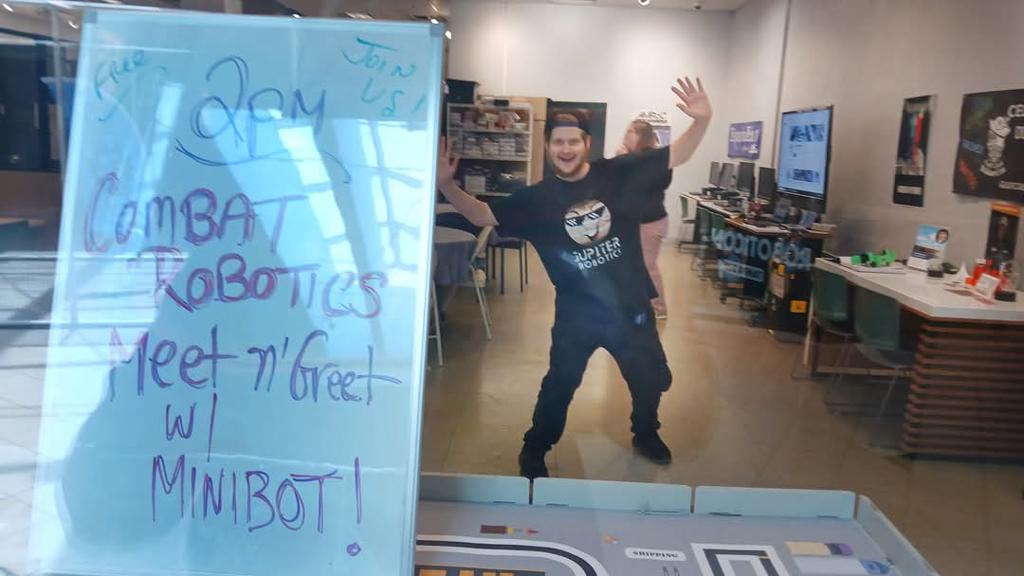 Free
JOIN
US!
2PM
COMBAT
ROBOTICS
Meet n' Greet
W/
MINIBOT!
JUPITER
ROBOTICS
SHIPPING